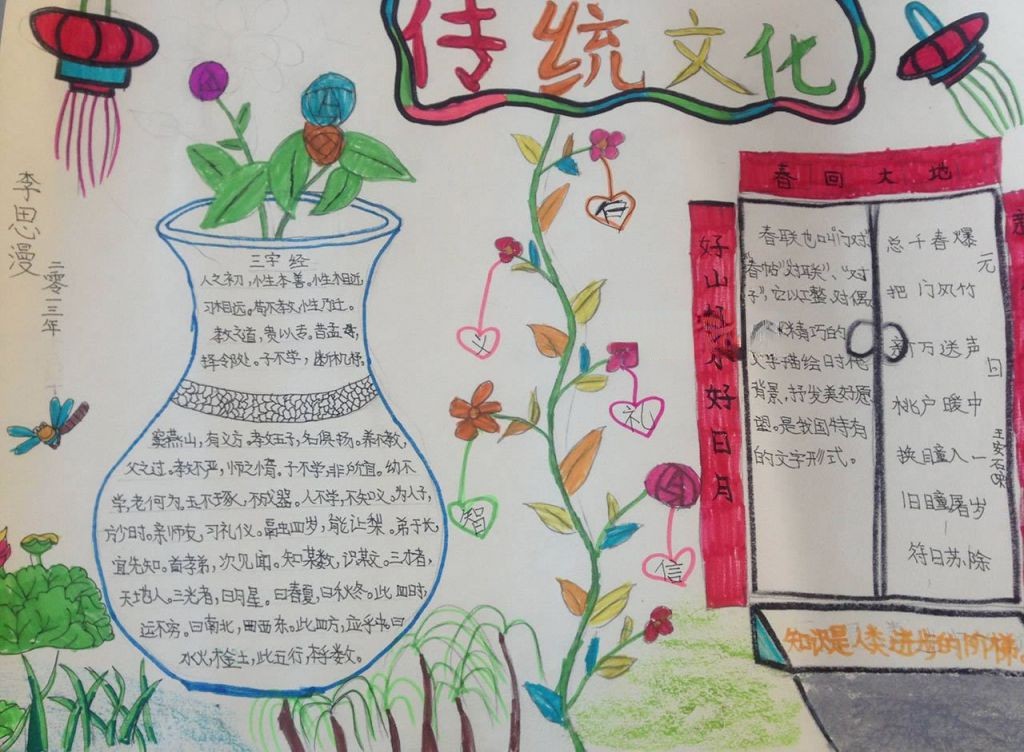 传统文化
李思漫
二零三年
三字经
人之初,小生本善。小生相近,
习相远。苟不教,小生乃迁。
教之道,贵以专。昔孟母,
择邻处。子不学,断机杼。
窦燕山,有义方。教五子,名俱扬。养不教,
父之过。教不严,师之惰。子不学,非所宜。幼不
学,老何为。玉不琢,不成器。人不学,不知义。为人子,
方少时。亲师友,习礼仪。融四岁,能让梨。弟于长,
宜先知。首孝弟,次见闻。知某数,识某文。三才者,
天地人。三光者,日月星。曰春夏,曰秋冬。此四时,
运不穷。曰南北,曰西东。此四方,应乎中。曰
水火,木金土,此五行,本乎数。
仁
义
礼
智
信
春回大地
好山好水好日月
春联也叫"门对"
"春帖""对联"、"对
子",它以工整、对偶
精巧的
文字描绘日时代
背景、抒发美好愿
望。是我国特有
的文字形式。
元日
王安石
爆竹声中一岁除
春风送暖入屠苏
千门万户曈曈日
总把新桃换旧符
知识是人类进步的阶梯